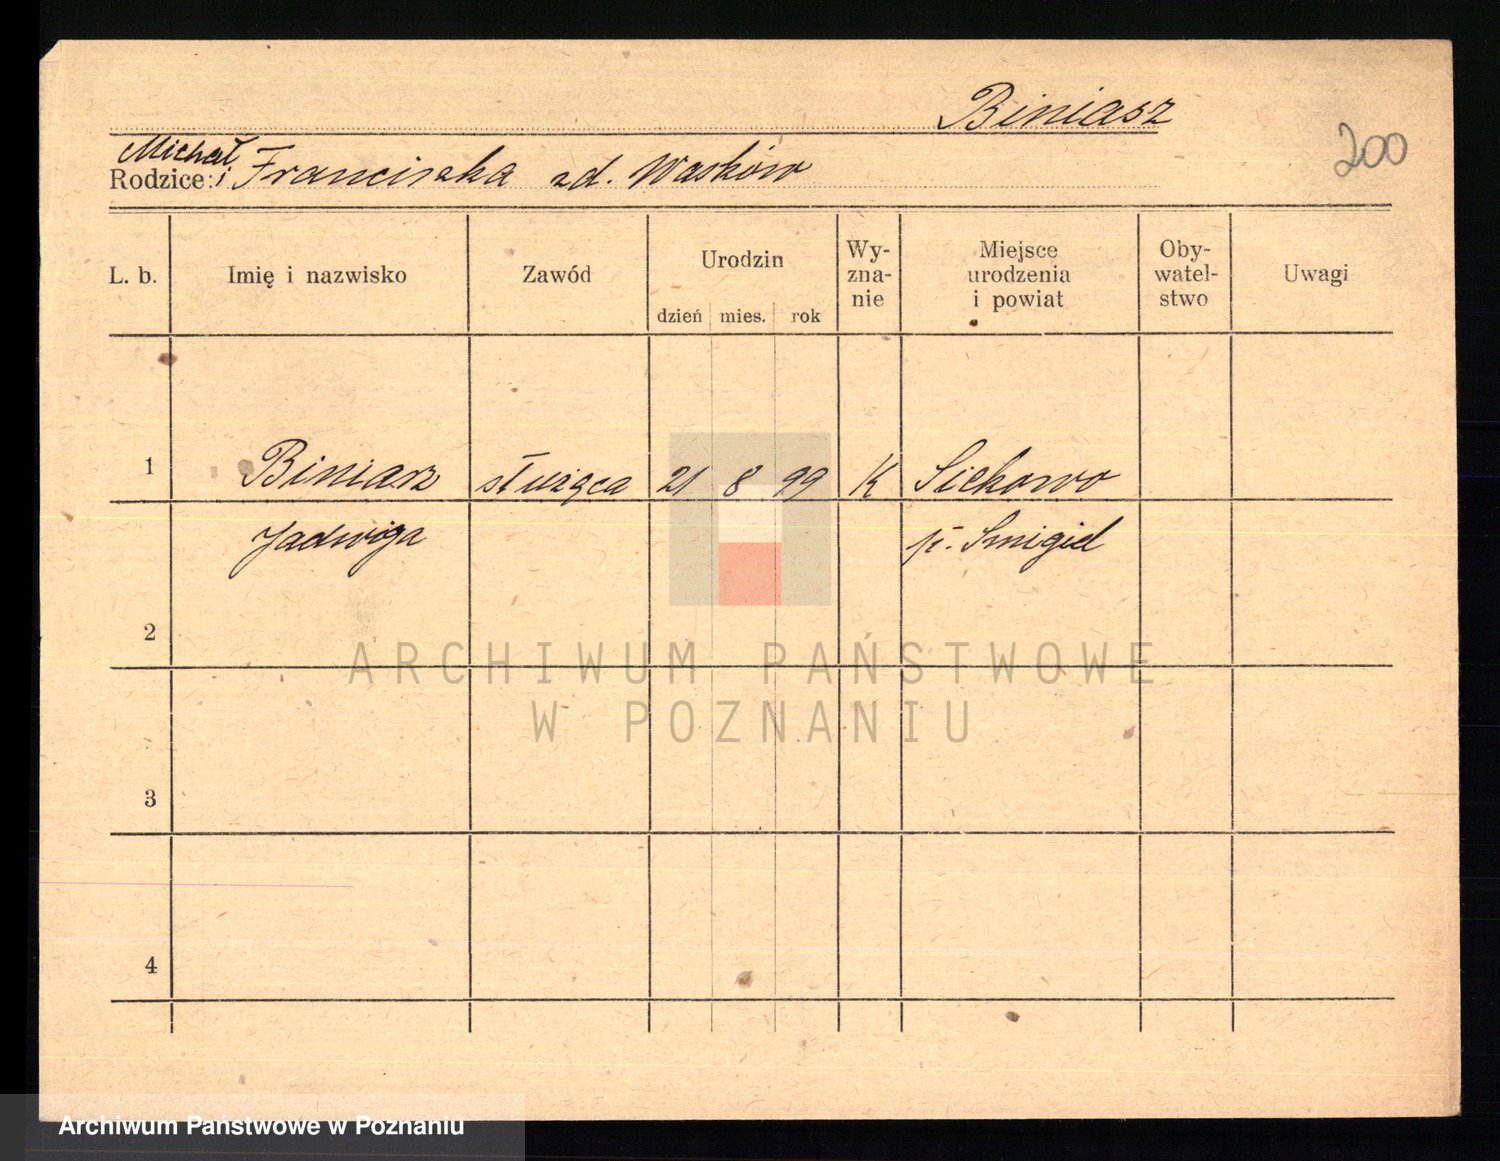 Biniasz
200
Michał
Rodzice: i Franciszka zd. Wasków
L. b. Imię i nazwisko Zawód Urodzin dzień mies. rok Wy-zna-nie Miejsce urodzenia i powiat Oby-watel-stwo Uwagi
1 Biniasz służąca 21 8 99 K Siekowo
Jadwiga p. Smigiel
2
ARCHIWUM PAŃSTWOWE
W POZNANIU
3
4
Archiwum Państwowe w Poznaniu